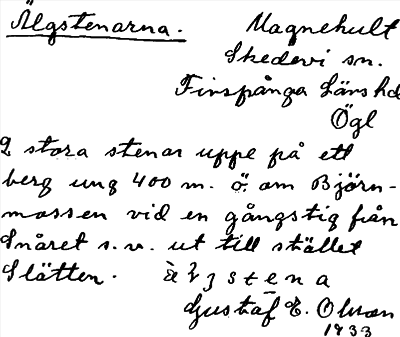 Älgstenarna.
Magnehult
Skedevi sn.
Finspånga Läns hd
Ögl
2 stora stenar uppe på ett
berg ung 400 m. ö. om Björn-
mossen vid en gångstig från
Snåret s.v. ut till stället
Slätten.
Gustaf E. Olsson
1933